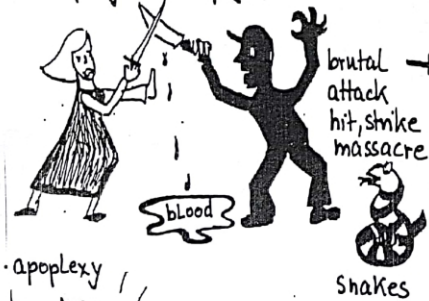 brutal
attack
hit, strike
massacre
blood
• apoplexy
snakes